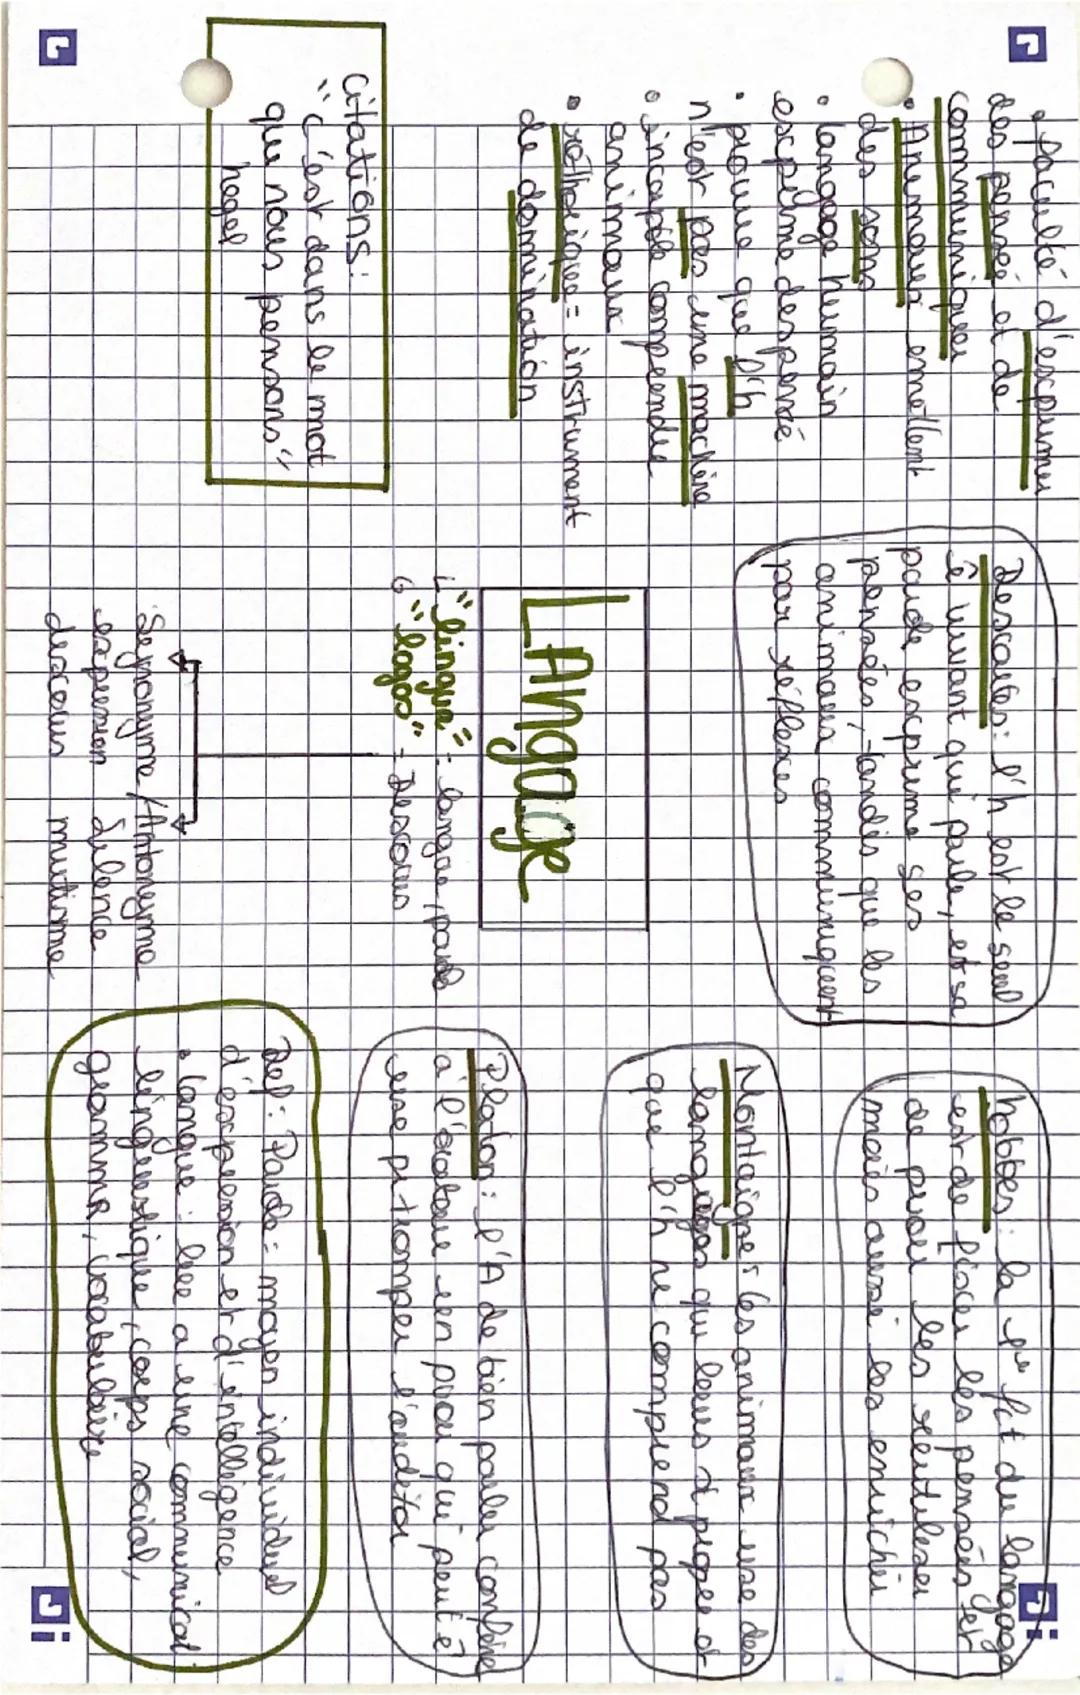 • faculté d'exprimer
des pensée et de
communiquer
• Animaux emettent
des sons
• langage humain
exprime des pensé
• prouve que l'h
n'est pas une machine
• incapble comprendre
animaux
• réthorique = instrument
de domination
Citations:
"c'est dans le mot
que nous pensons"
hegel
Descartes: l'h est le seul
ê vivant qui parle, et sa
parole exprime ses
pensées, tandis que les
animaux communiquent
par réflexes
LAngage
L "lingua": langue, parole
G "logos" - Discours
Synonyme / Antonyme
expression silence
discours mutisme
hobbes: la 1re fct du langage
est de fixer les pensées
de pvoir les réutiliser
mais aussi les enrichir
Montaigne: les animaux use des
langages qui leurs st propre et
que l'h ne comprend pas
Platon: l'A de bien parler confère
à l'orateur un pvoir qui peut ê
use pr tromper l'auditoi
Def: Parole = moyen individuel
d'expression et d'intelligence
• langue: liée a une communicat
linguistique, corps social,
gramma, vocabulaire